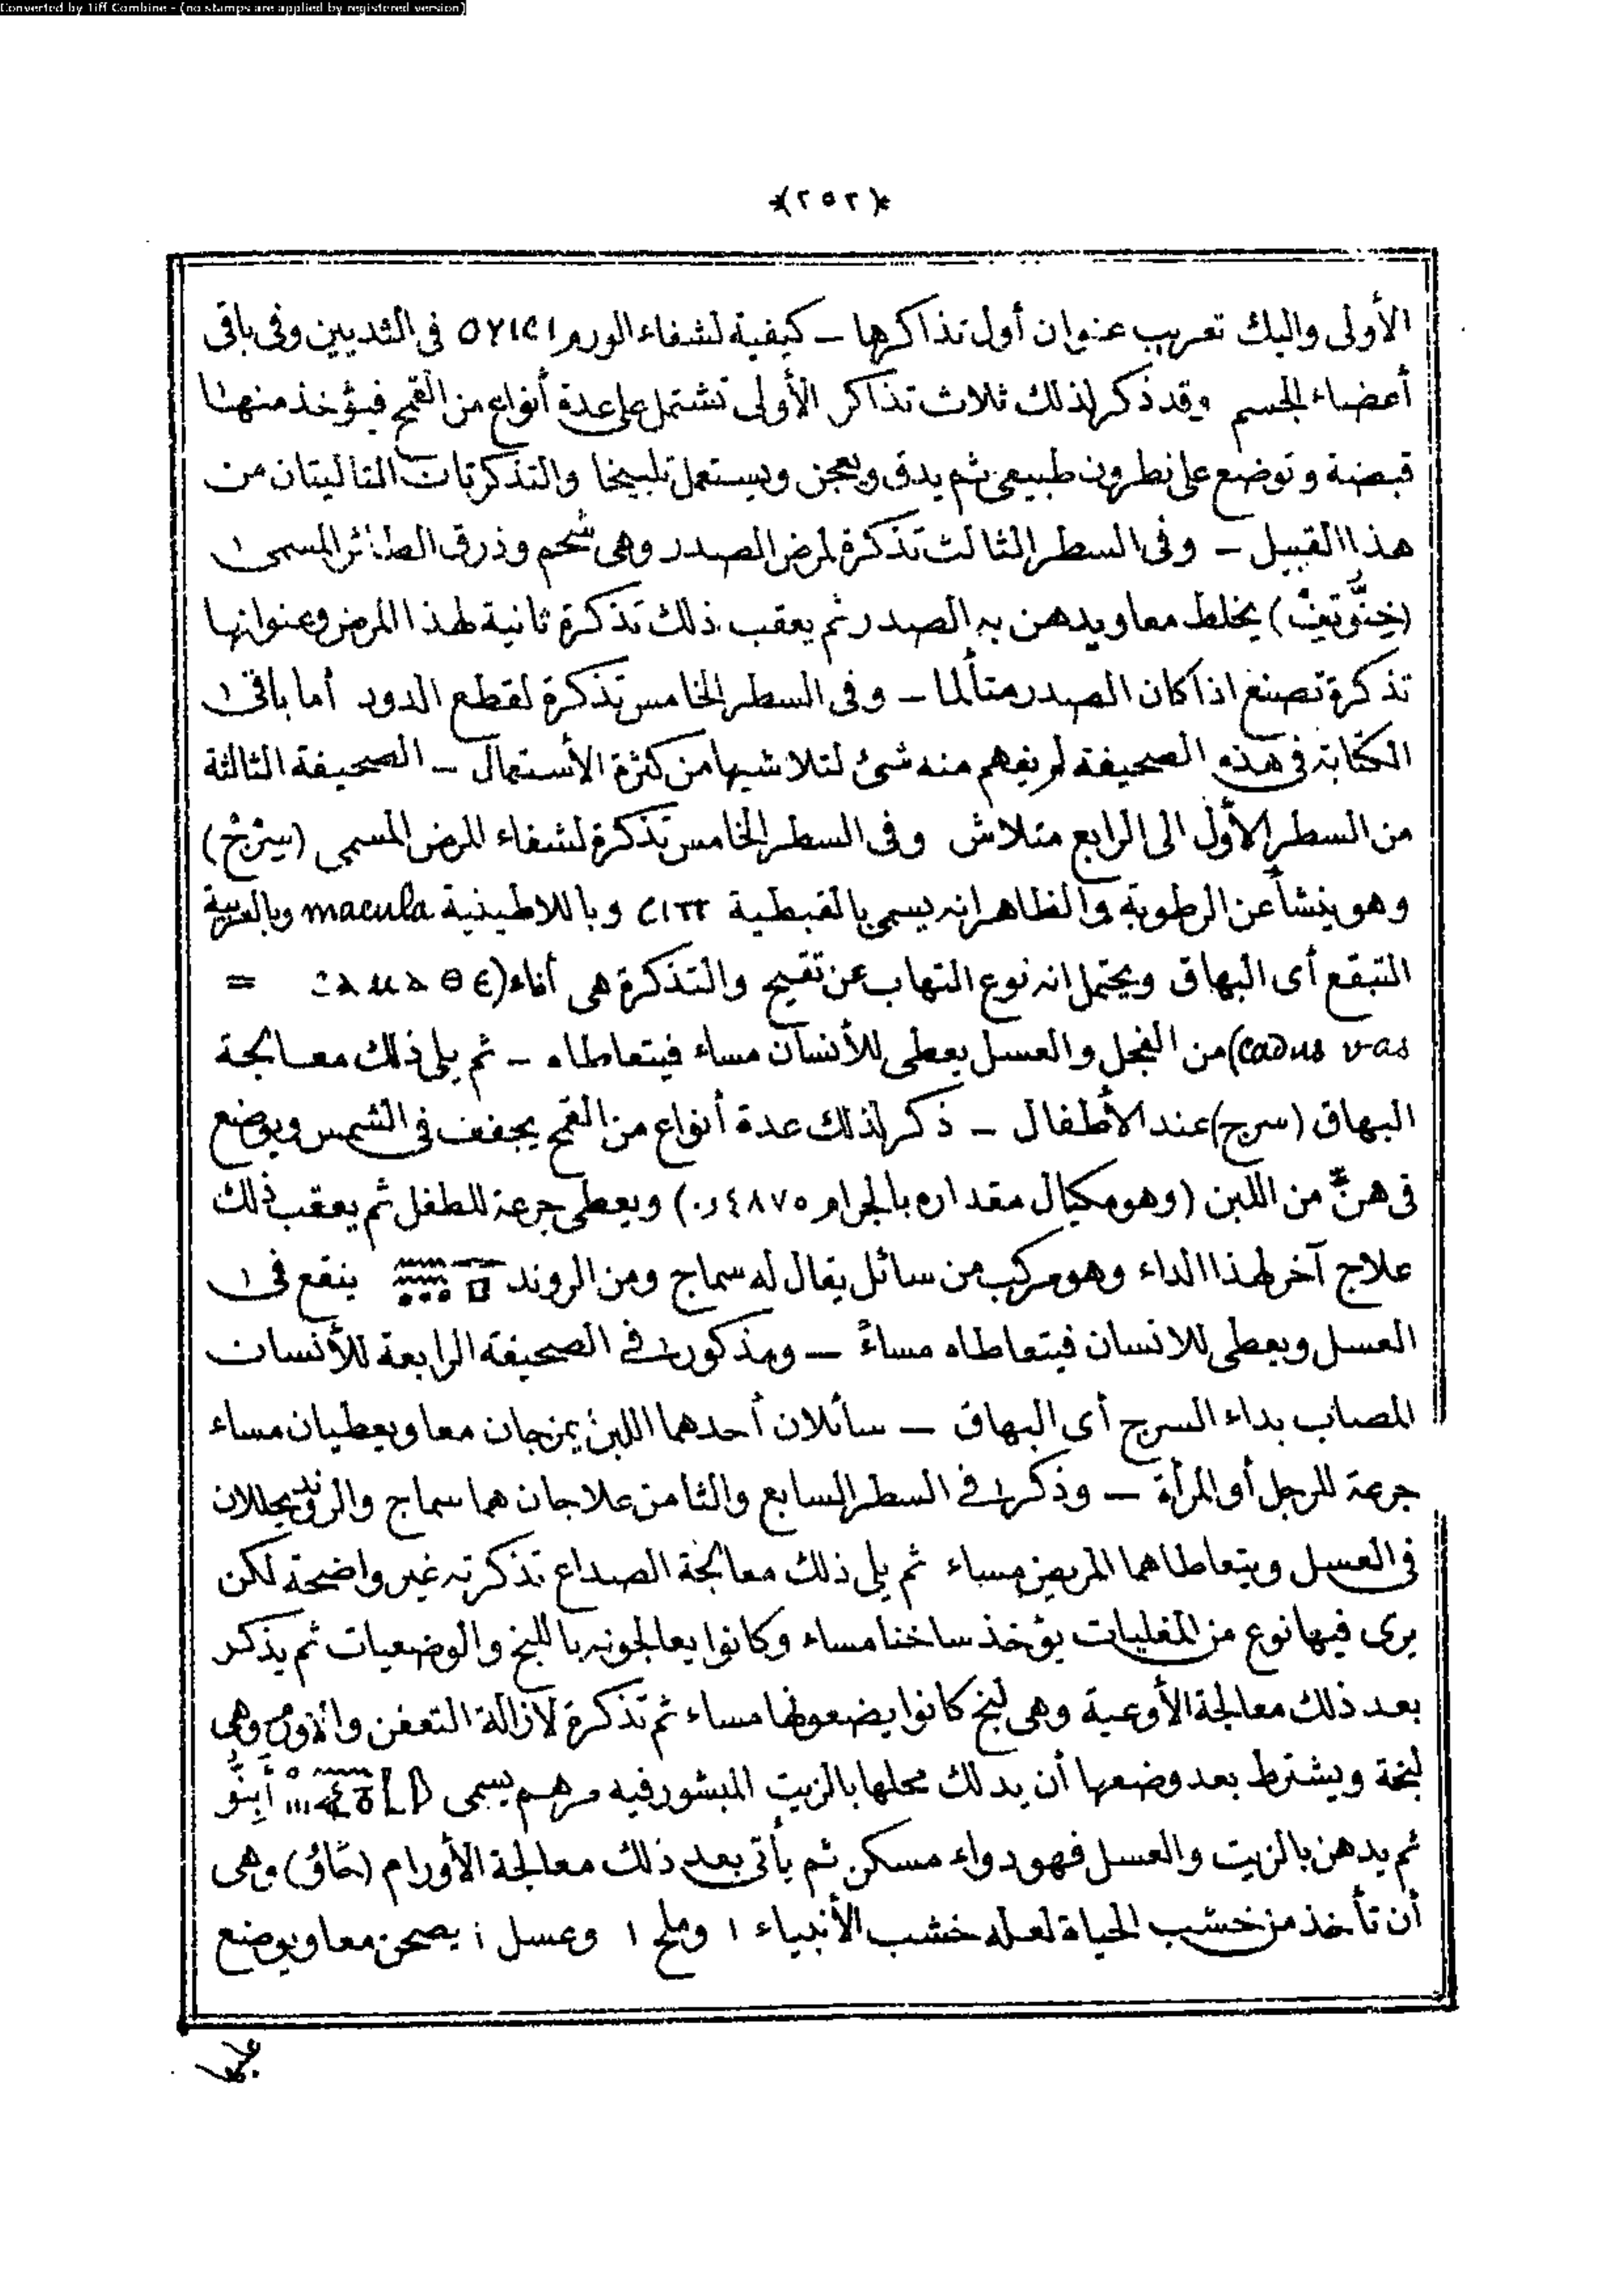 Converted by Tiff Combine - (no stamps are applied by registered version)
*(٢٥٢)*
الأولى واليك تعريب عنوان أول تذاكرها – كيفية لشفاء الورم في الثديين وفى باقى
أعضاء الجسم وقد ذكر لذلك ثلاث تذاكر الأولى تشتمل على عدة أنواع من القمح فيؤخذ منها
قبضة وتوضع على نطرون طبيعى ثم يدق ويعجن ويستعمل تلبيخا والتذكرتان التاليتان من
هذا القبيل – وفى السطر الثالث تذكرة لمرض الصدر وهى شحم وذرق الطائر المسمى
يخلط معا ويدهن به الصدر ثم يعقب ذلك تذكرة ثانية لهذا المرض وعنوانها
تذكرة تصنع اذا كان الصدر متألما – وفى السطر الخامس تذكرة لقطع الدود أما باقى
الكتابة فى هذه الصحيفة لم يفهم منه شئ لتلاشيها من كثرة الأستعمال – الصحيفة الثالثة
من السطر الأول الى الرابع متلاش وفى السطر الخامس تذكرة لشفاء المرض المسمى (سِرْجْ)
وهو ينشأ عن الرطوبة والظاهر انه يسمى بالقبطية وباللاطينية macula وبالعربية
التبقع أى البهاق ويحتمل انه نوع التهاب عن تقيح والتذكرة هى أناء ( =
cadus vas) من الفجل والعسل يعطى للأنسان مساء فيتعاطاه – ثم يلى ذلك معالجة
البهاق (سرج) عند الأطفال – ذكر لذلك عدة أنواع من القمح يجفف فى الشمس ويوضع
فى هنّ من اللبن (وهو مكيال مقداره بالجرام ٤٨٧٥ر٠) ويعطى جرعة للطفل ثم يعقب ذلك
علاج آخر لهذا الداء وهو مركب من سائل يقال له سماج ومن الروند ينقع فى
العسل ويعطى للانسان فيتعاطاه مساءً – ومذكور فى الصحيفة الرابعة للأنسان
المصاب بداء السرج أى البهاق – سائلان أحدهما اللبن يمزجان معا ويعطيان مساء
جرعة للرجل أو المرأة – وذكر فى السطر السابع والثامن علاجان هما سماج والروند يحللان
فى العسل ويتعاطاهما المريض مساء ثم يلى ذلك معالجة الصداع تذكرته غير واضحة لكن
يرى فيها نوع من المغليات يؤخذ ساخنا مساء وكانوا يعالجونه باللبخ والوضعيات ثم يذكر
بعد ذلك معالجة الأوعية وهى لبخ كانوا يضعونها مساء ثم تذكرة لازالة التعفن والورم وهى
لبخة ويشترط بعد وضعها أن يدلك محلها بالزيت المبشور فيه مرهم يسمى
ثم يدهن بالزيت والعسل فهو دواء مسكن ثم يأتى بعد ذلك معالجة الأورام وهى
أن تأخذ من خشب الحياة لعله خشب الأنبياء ١ وملح ١ وعسل ١ يصحن معا ويوضع
عليها